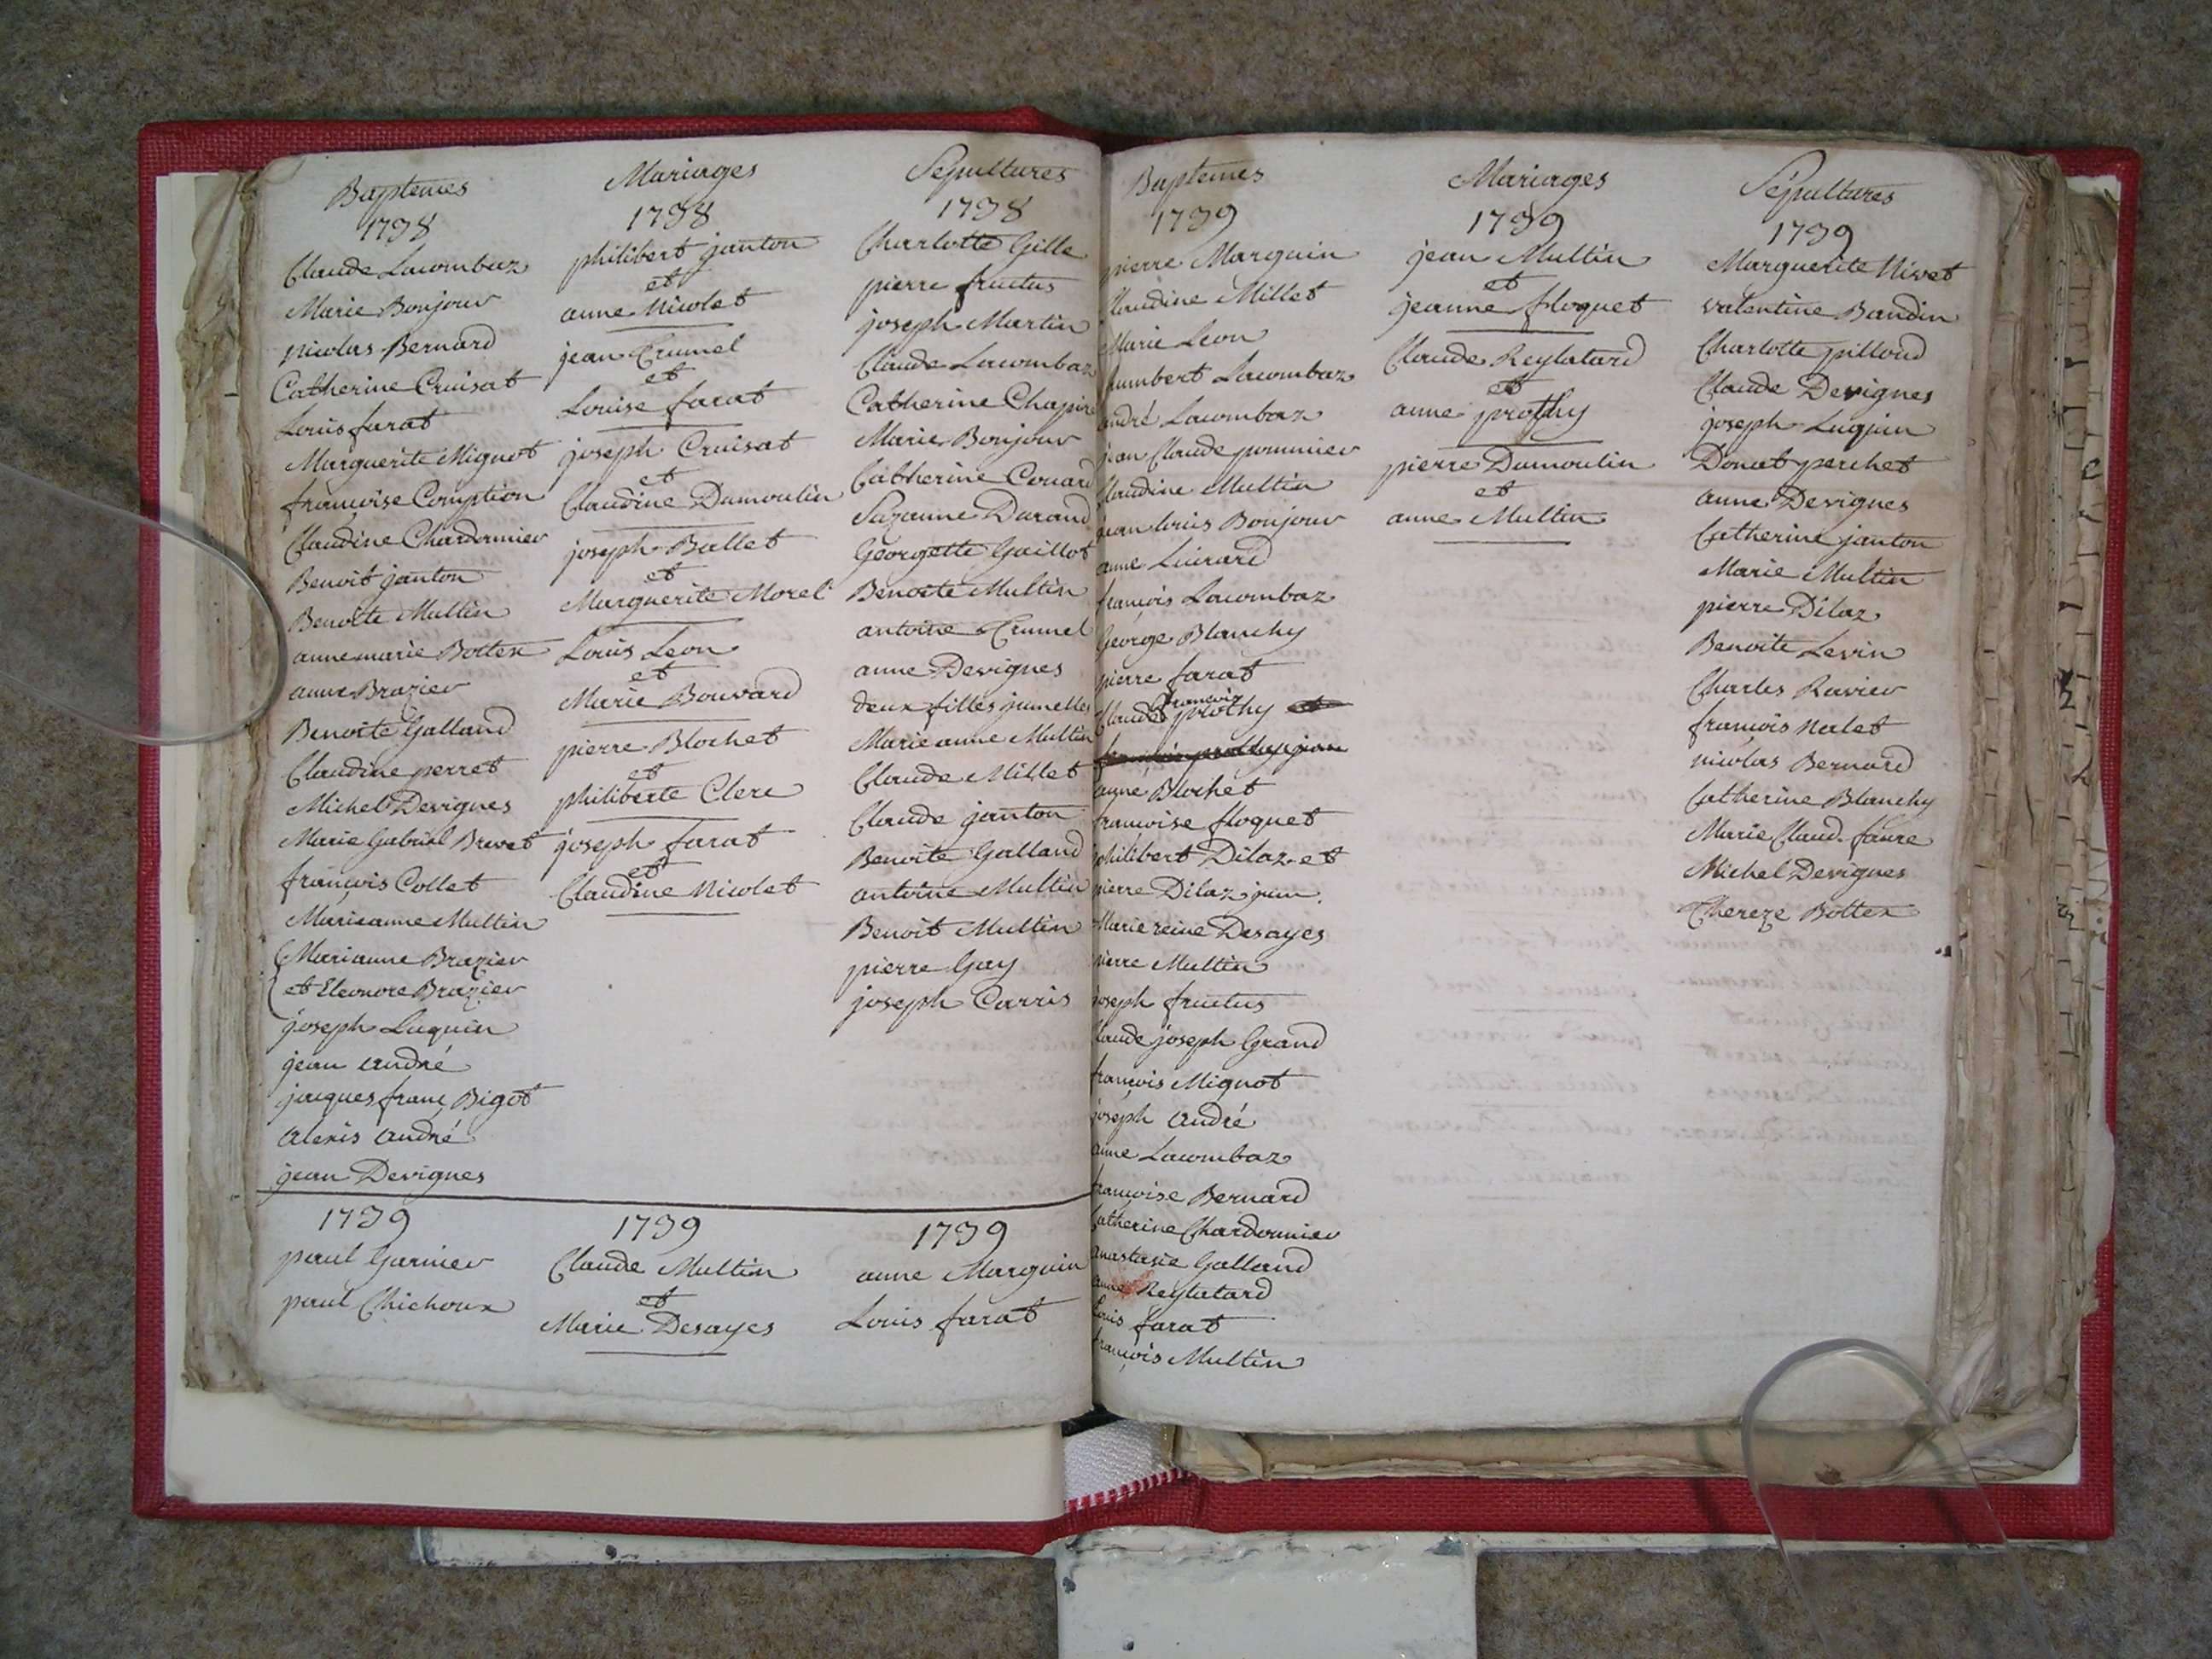 Baptemes
1738
Claude Lacombaz
Marie Bonjour
nicolas Bernard
Catherine Cruisat
Louis farat
Marguerite Mignot
françoise Comption
Claudine Chardonnier
Benoit janton
Benoite Multin
anne marie Bottex
anne Brazier
Benoite Galland
Claudine perret
Michel Devignes
Marie Gabriel Brevet
françois Collet
Marieanne Multin
Marianne Brazier
et Eleonore Brazier
joseph Luquin
jean andré
jacques franç Bigot
alexis andré
jean Devignes
1739
paul Garnier
paul Chichoux
Mariages
1738
philibert janton
et
anne Nicolet
jean Trumel
et
Louise farat
joseph Cruisat
et
Claudine Dumoulin
joseph Ballet
et
Marguerite Morel
Louis Leon
et
Marie Bouvard
pierre Blochet
et
philiberte Clerc
joseph farat
et
Claudine Nicolet
1739
Claude Multin
et
Marie Desayes
Sépultures
1738
Charlotte Gille
pierre fructus
joseph Martin
Claude Lacombaz
Catherine
Marie Bonjour
Catherine Couard
Suzanne Durand
Georgette Gaillot
Benoite Multin
antoine Trumel
anne Devignes
deux filles jumelles
Marie anne Multin
Claude Millet
Claude janton
Benoite Galland
antoine Multin
Benoit Multin
pierre Gay
joseph Carris
1739
anne Marguin
Louis farat
Baptemes
1739
pierre Marguin
Claudine Millet
Marie Leon
humbert Lacombaz
andré Lacombaz
jean Claude pommier
Claudine Multin
jean louis Bonjour
anne Luirard
françois Lacombaz
George Blanchy
pierre farat
françois
Claude prothy
anne Blochet
françoise floquet
philibert Dilaz et
pierre Dilaz jum.
Marie reine Desayes
pierre Multin
joseph fructus
Claude joseph Grand
françois Mignot
joseph andré
anne Lacombaz
françoise Bernard
Catherine Chardonnier
anastasie Galland
anne Reylatard
Louis farat
françois Multin
Mariages
1739
jean Multin
et
jeanne floquet
Claude Reylatard
et
anne prothy
pierre Dumoulin
et
anne Multin
Sépultures
1739
Marguerite Nivet
valentine Bandin
Charlotte pilloud
Claude Devignes
joseph Luquin
Donat perchet
anne Devignes
Catherine janton
Marie Multin
pierre Dilaz
Benoite Levin
Charles Ravier
françois Nalet
nicolas Bernard
Catherine Blanchy
Marie Claud. faure
Michel Devignes
Thereze Bottex